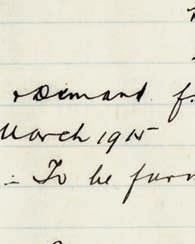 & Demand f
March 1915
:- To be furn